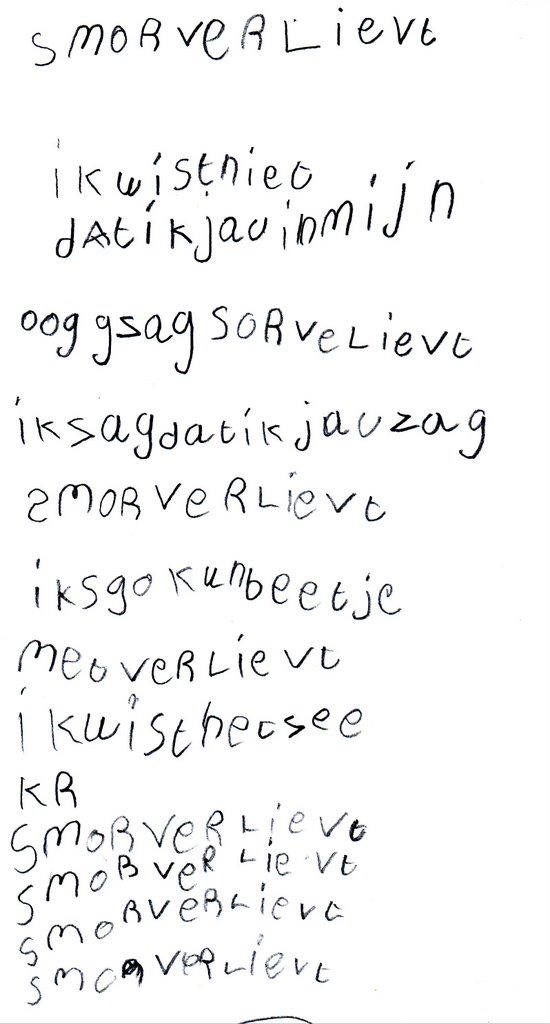 SMORVERLievt
ikwistniet
dAtikjauinmijn
ooggsagSORVeLievt
iksagdatikjauzag
SMORVeRLievt
iksgokunbeetje
MetveRLievt
ikwisthetsee
KR
SMORVeRLievt
SMORVeRLievt
SMORVeRLievt
SMORVeRLievt